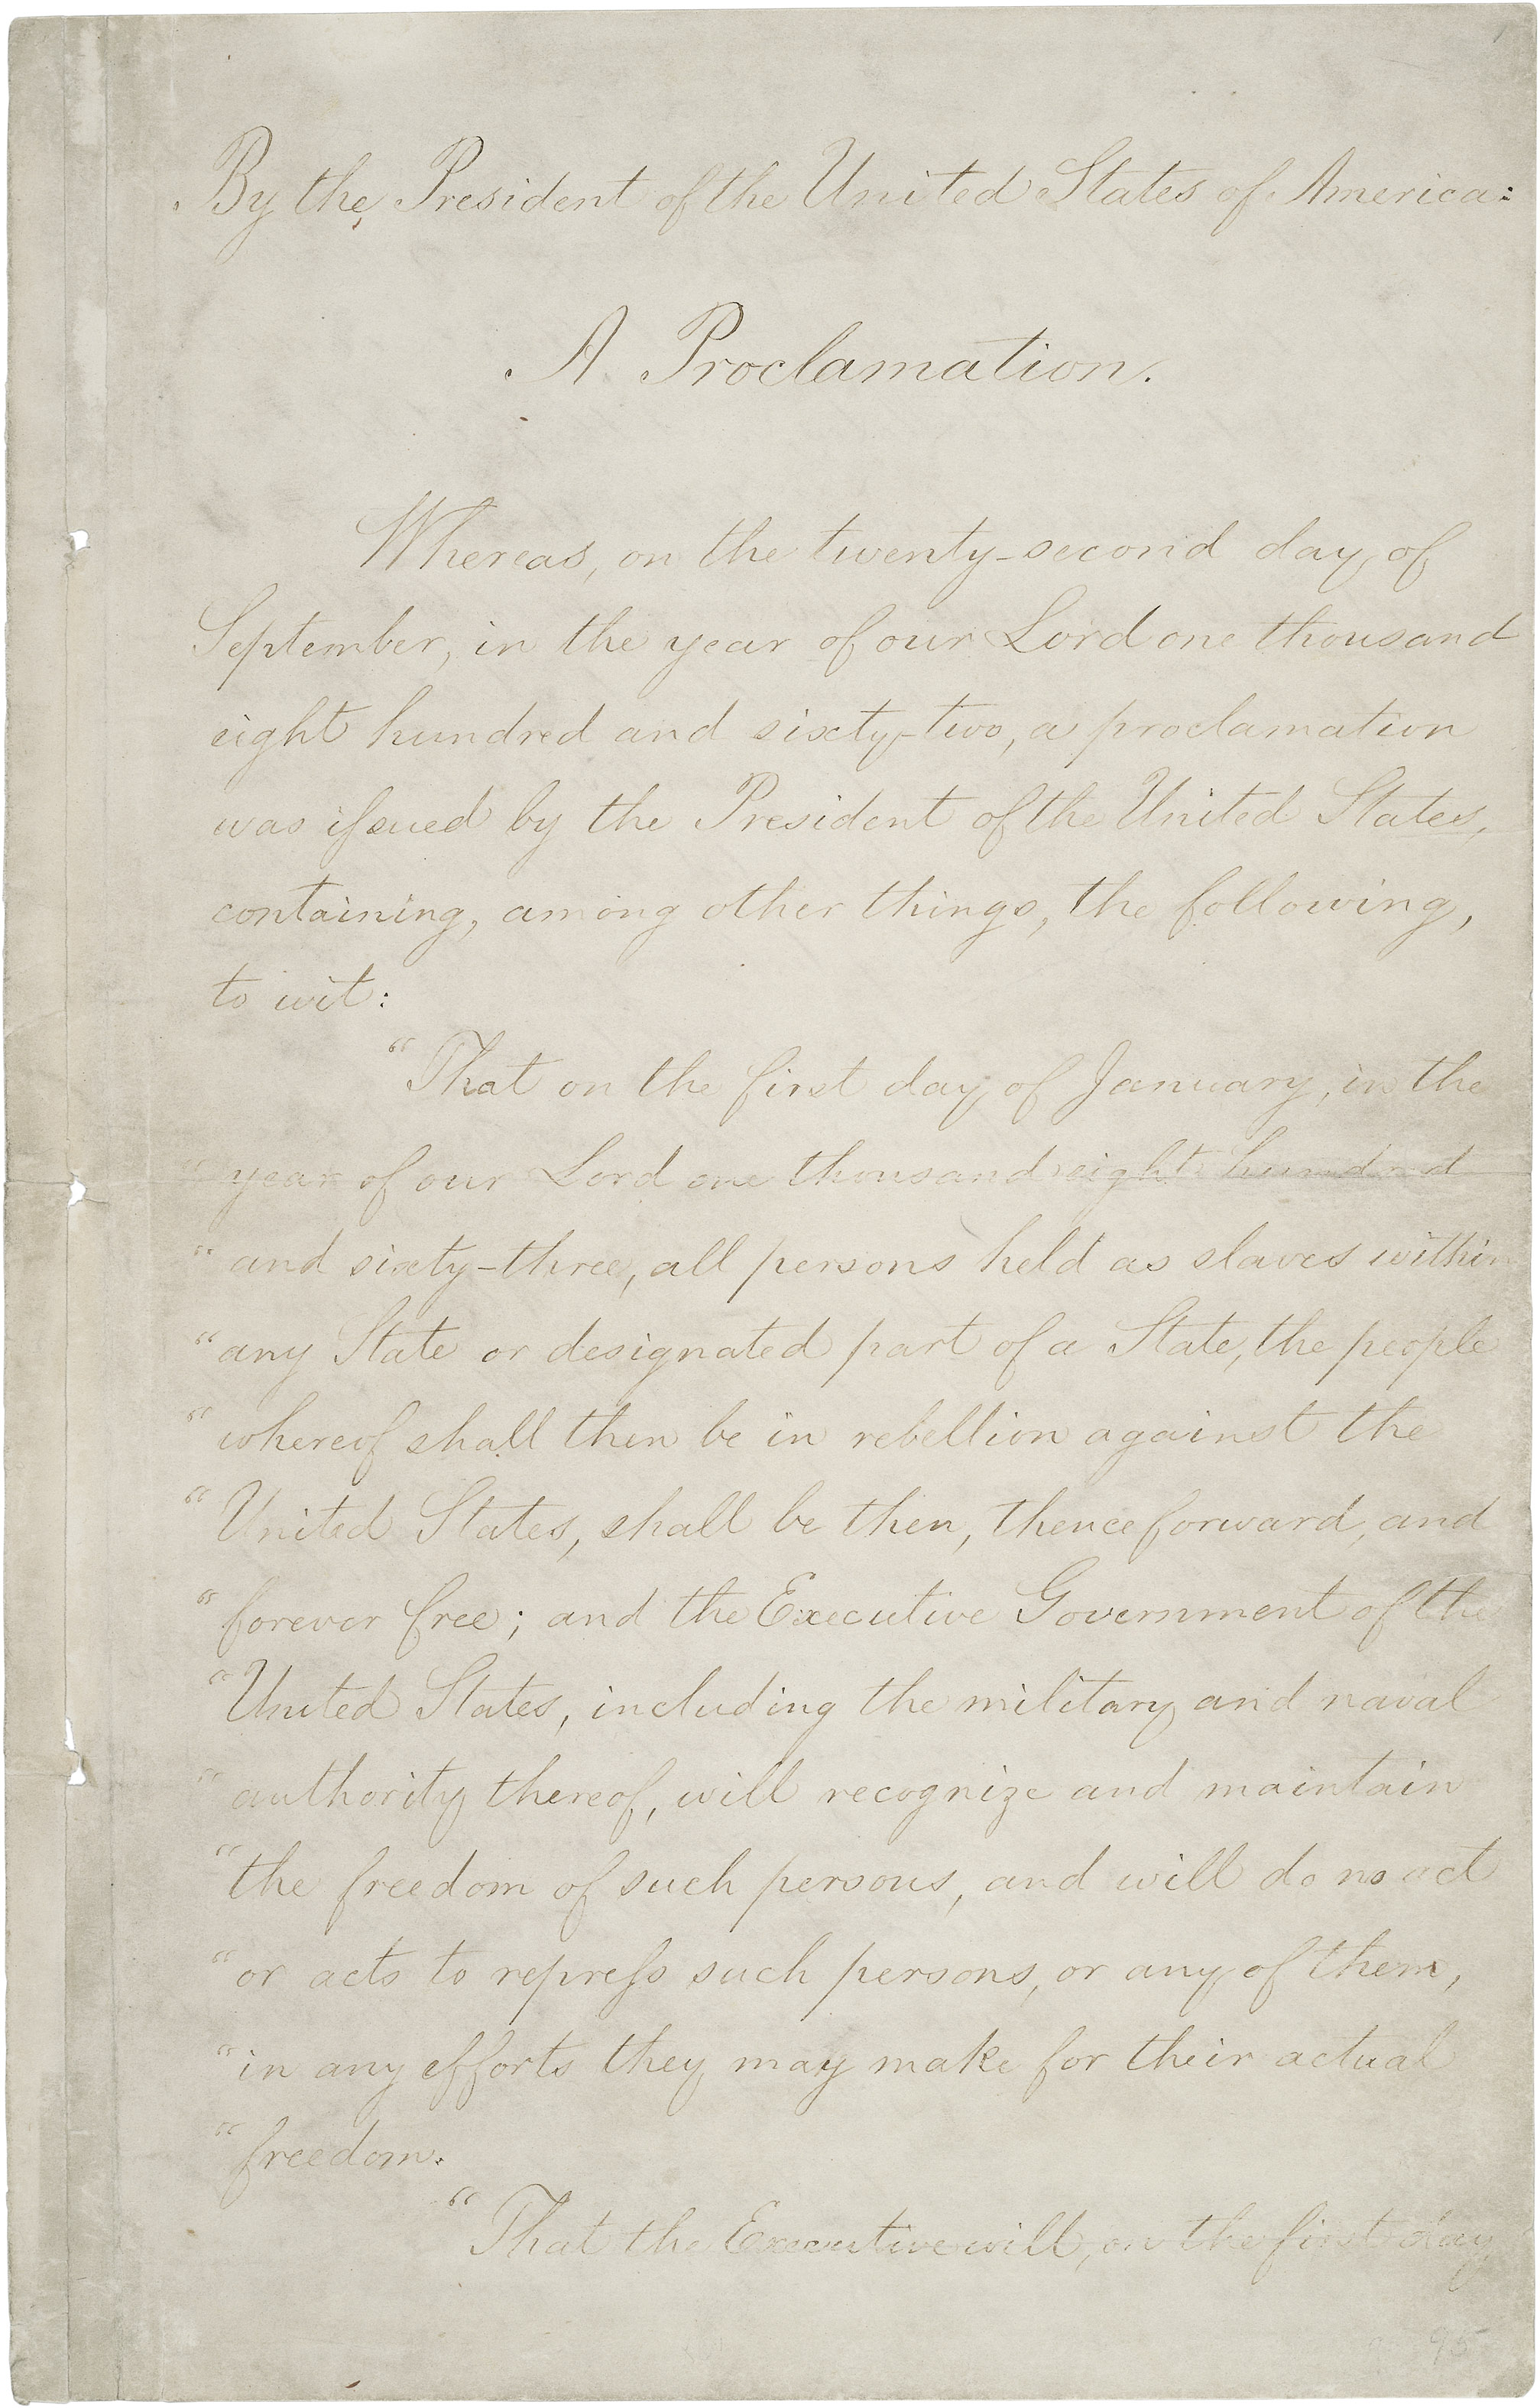 By the President of the United States of America:
A Proclamation.
Whereas, on the twenty-second day of
September, in the year of our Lord one thousand
eight hundred and sixty-two, a proclamation
was iſsued by the President of the United States,
containing, among other things, the following,
to wit:
“That on the first day of January, in the
“year of our Lord one thousand eight hundred
“and sixty-three, all persons held as slaves within
“any State or designated part of a State, the people
“whereof shall then be in rebellion against the
“United States, shall be then, thenceforward, and
“forever free; and the Executive Government of the
“United States, including the military and naval
“authority thereof, will recognize and maintain
“the freedom of such persons, and will do no act
“or acts to repreſs such persons, or any of them,
“in any efforts they may make for their actual
“freedom.
“That the Executive will, on the first day
95